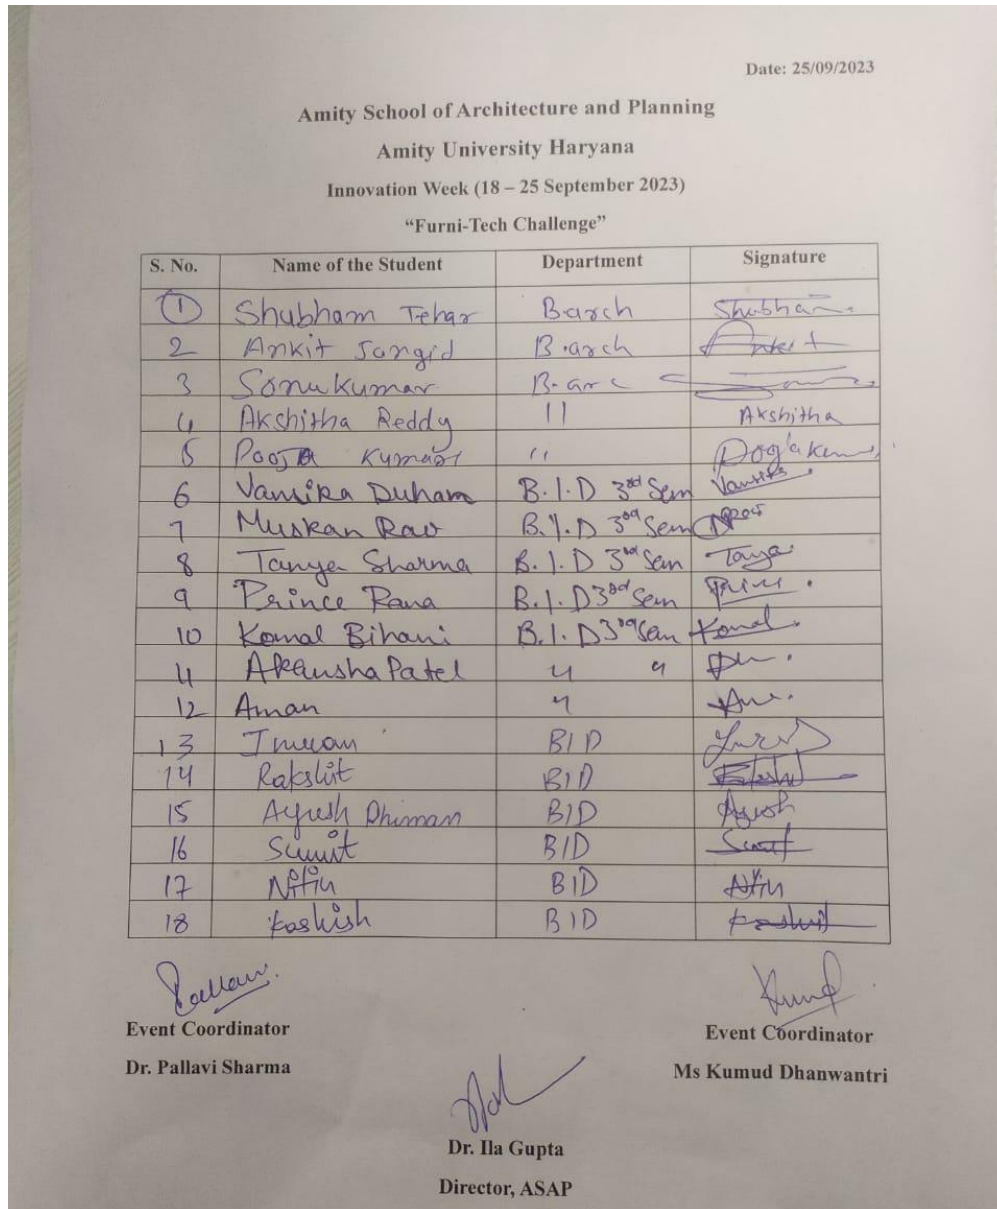 Date: 25/09/2023
Amity School of Architecture and Planning
Amity University Haryana
Innovation Week (18 – 25 September 2023)
“Furni-Tech Challenge”
S. No. Name of the Student Department Signature
1 Shubham Tehar B.arch Shubham
2 Ankit Jangid B.arch Ankit
3 Sonu Kumar B.arc
4 Akshitha Reddy 11 Akshitha
5 Pooja Kumari " Pooja Kum
6 Vanshika Duhan B.I.D 3rd Sem
7 Muskan Rao B.I.D 3rd Sem
8 Tanya Sharma B.I.D 3rd Sem Tanya
9 Prince Rana B.I.D 3rd Sem
10 Komal Bihani B.I.D 3rd Sem Komal
11 Akansha Patel " "
12 Aman "
13 BID
14 Rakshit BID
15 Ayush Dhiman BID Ayush
16 Sumit BID Sumit
17 Nitin BID Nitin
18 Kashish BID
Pallavi
Event Coordinator Event Coordinator
Dr. Pallavi Sharma Ms Kumud Dhanwantri
Dr. Ila Gupta
Director, ASAP